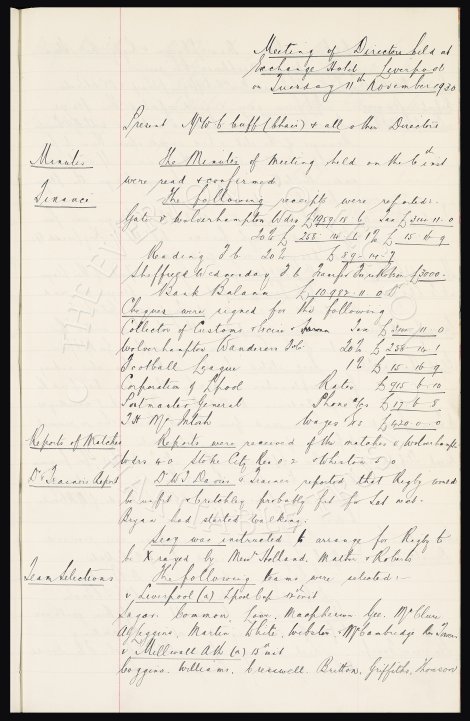 Meeting of Directors held at
Exchange Hotel Liverpool
on Tuesday 11th November 1930
Present Mr W C Cuff (Chair) & all other Directors
Minutes The Minutes of Meeting held on the 6th inst
were read & confirmed
Finance The following receipts were reported:-
Gate v Wolverhampton Wdrs £1959 15 6 Tax £ 11 0
20% £ 258 14 1 1% £ 15 16 9
Reading F C 20% £ 89 14 7
Sheffield Wednesday F C Transfer £3000
Bank Balance £10982 11 0
Cheques were signed for the following
Collector of Customs & Excise Tax £ 11 0
Wolverhampton Wanderers F.C. 20% £ 258 14 1
Football League 1% £ 15 16 9
Corporation of L'pool Rates £ 915 6 10
Postmaster General Phone a/cs £ 17 6 8
T H McIntosh Wages £ 420 0 0
Reports of Matches Reports were received of the matches v Wolverhampton
Wdrs 4 0 Stoke City Res 0 2 Whiston 5 0
Dr & Trainers Report Dr W J Davies & Trainer reported, that Rigby would
be unfit & Critchley probably fit for Sat next.
Bryan had started walking.
Secy was instructed to arrange for Rigby to
be X rayed by Messrs Holland, Mather & Roberts
Team Selections The following teams were selected:-
v Liverpool (a) L'pool Cup 12th inst
Sagar. Common, Lowe. Macpherson Gee. McClure
 Martin. White, Webster & McCambridge Res
v Millwall Ath (a) 15th inst
Coggins. Williams. Cresswell. Britton, Griffiths, Thomson